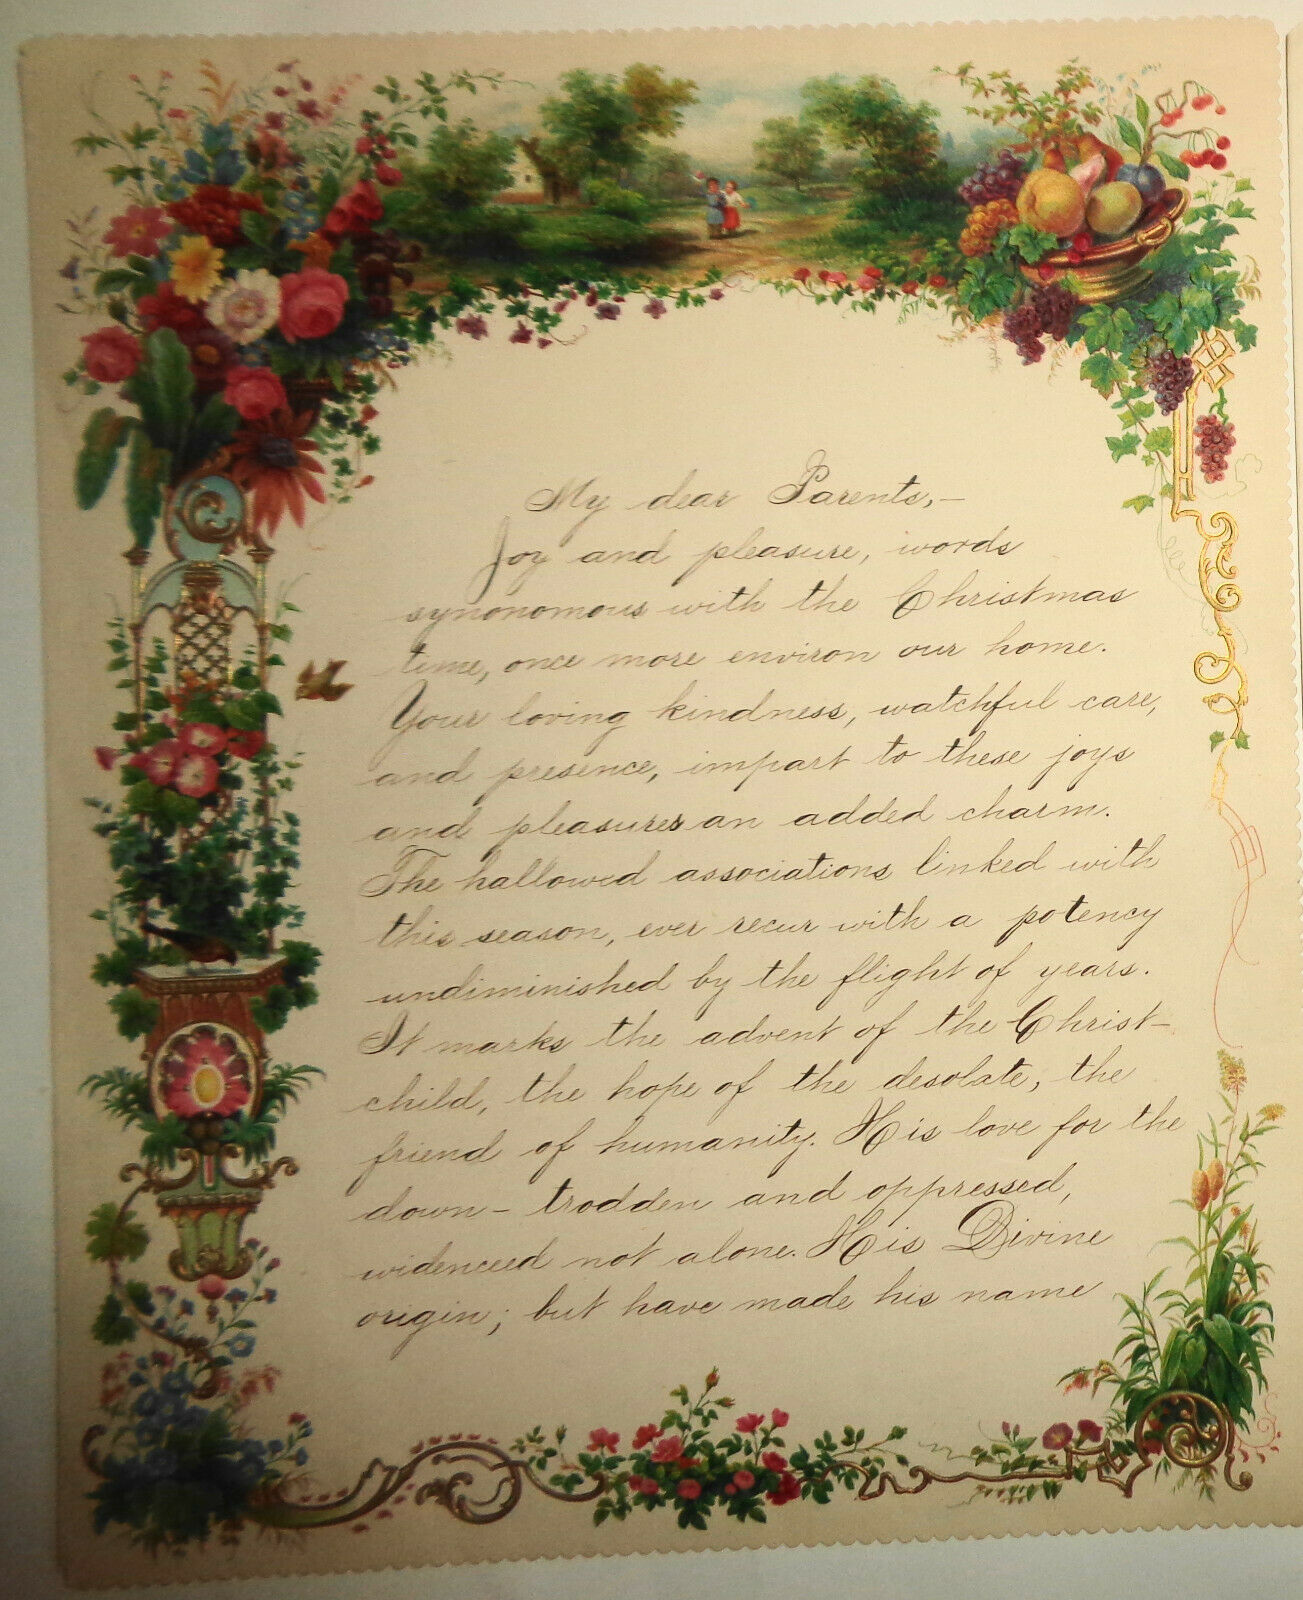 My dear Parents,–
Joy and pleasure, words
synonomous with the Christmas
time, once more environ our home.
Your loving kindness, watchful care,
and presence, impart to these joys
and pleasures an added charm.
The hallowed associations linked with
this season, ever recur with a potency
undiminished by the flight of years.
It marks the advent of the Christ-
child, the hope of the desolate, the
friend of humanity. His love for the
down-trodden and oppressed,
evidenced not alone. His Divine
origin; but have made his name